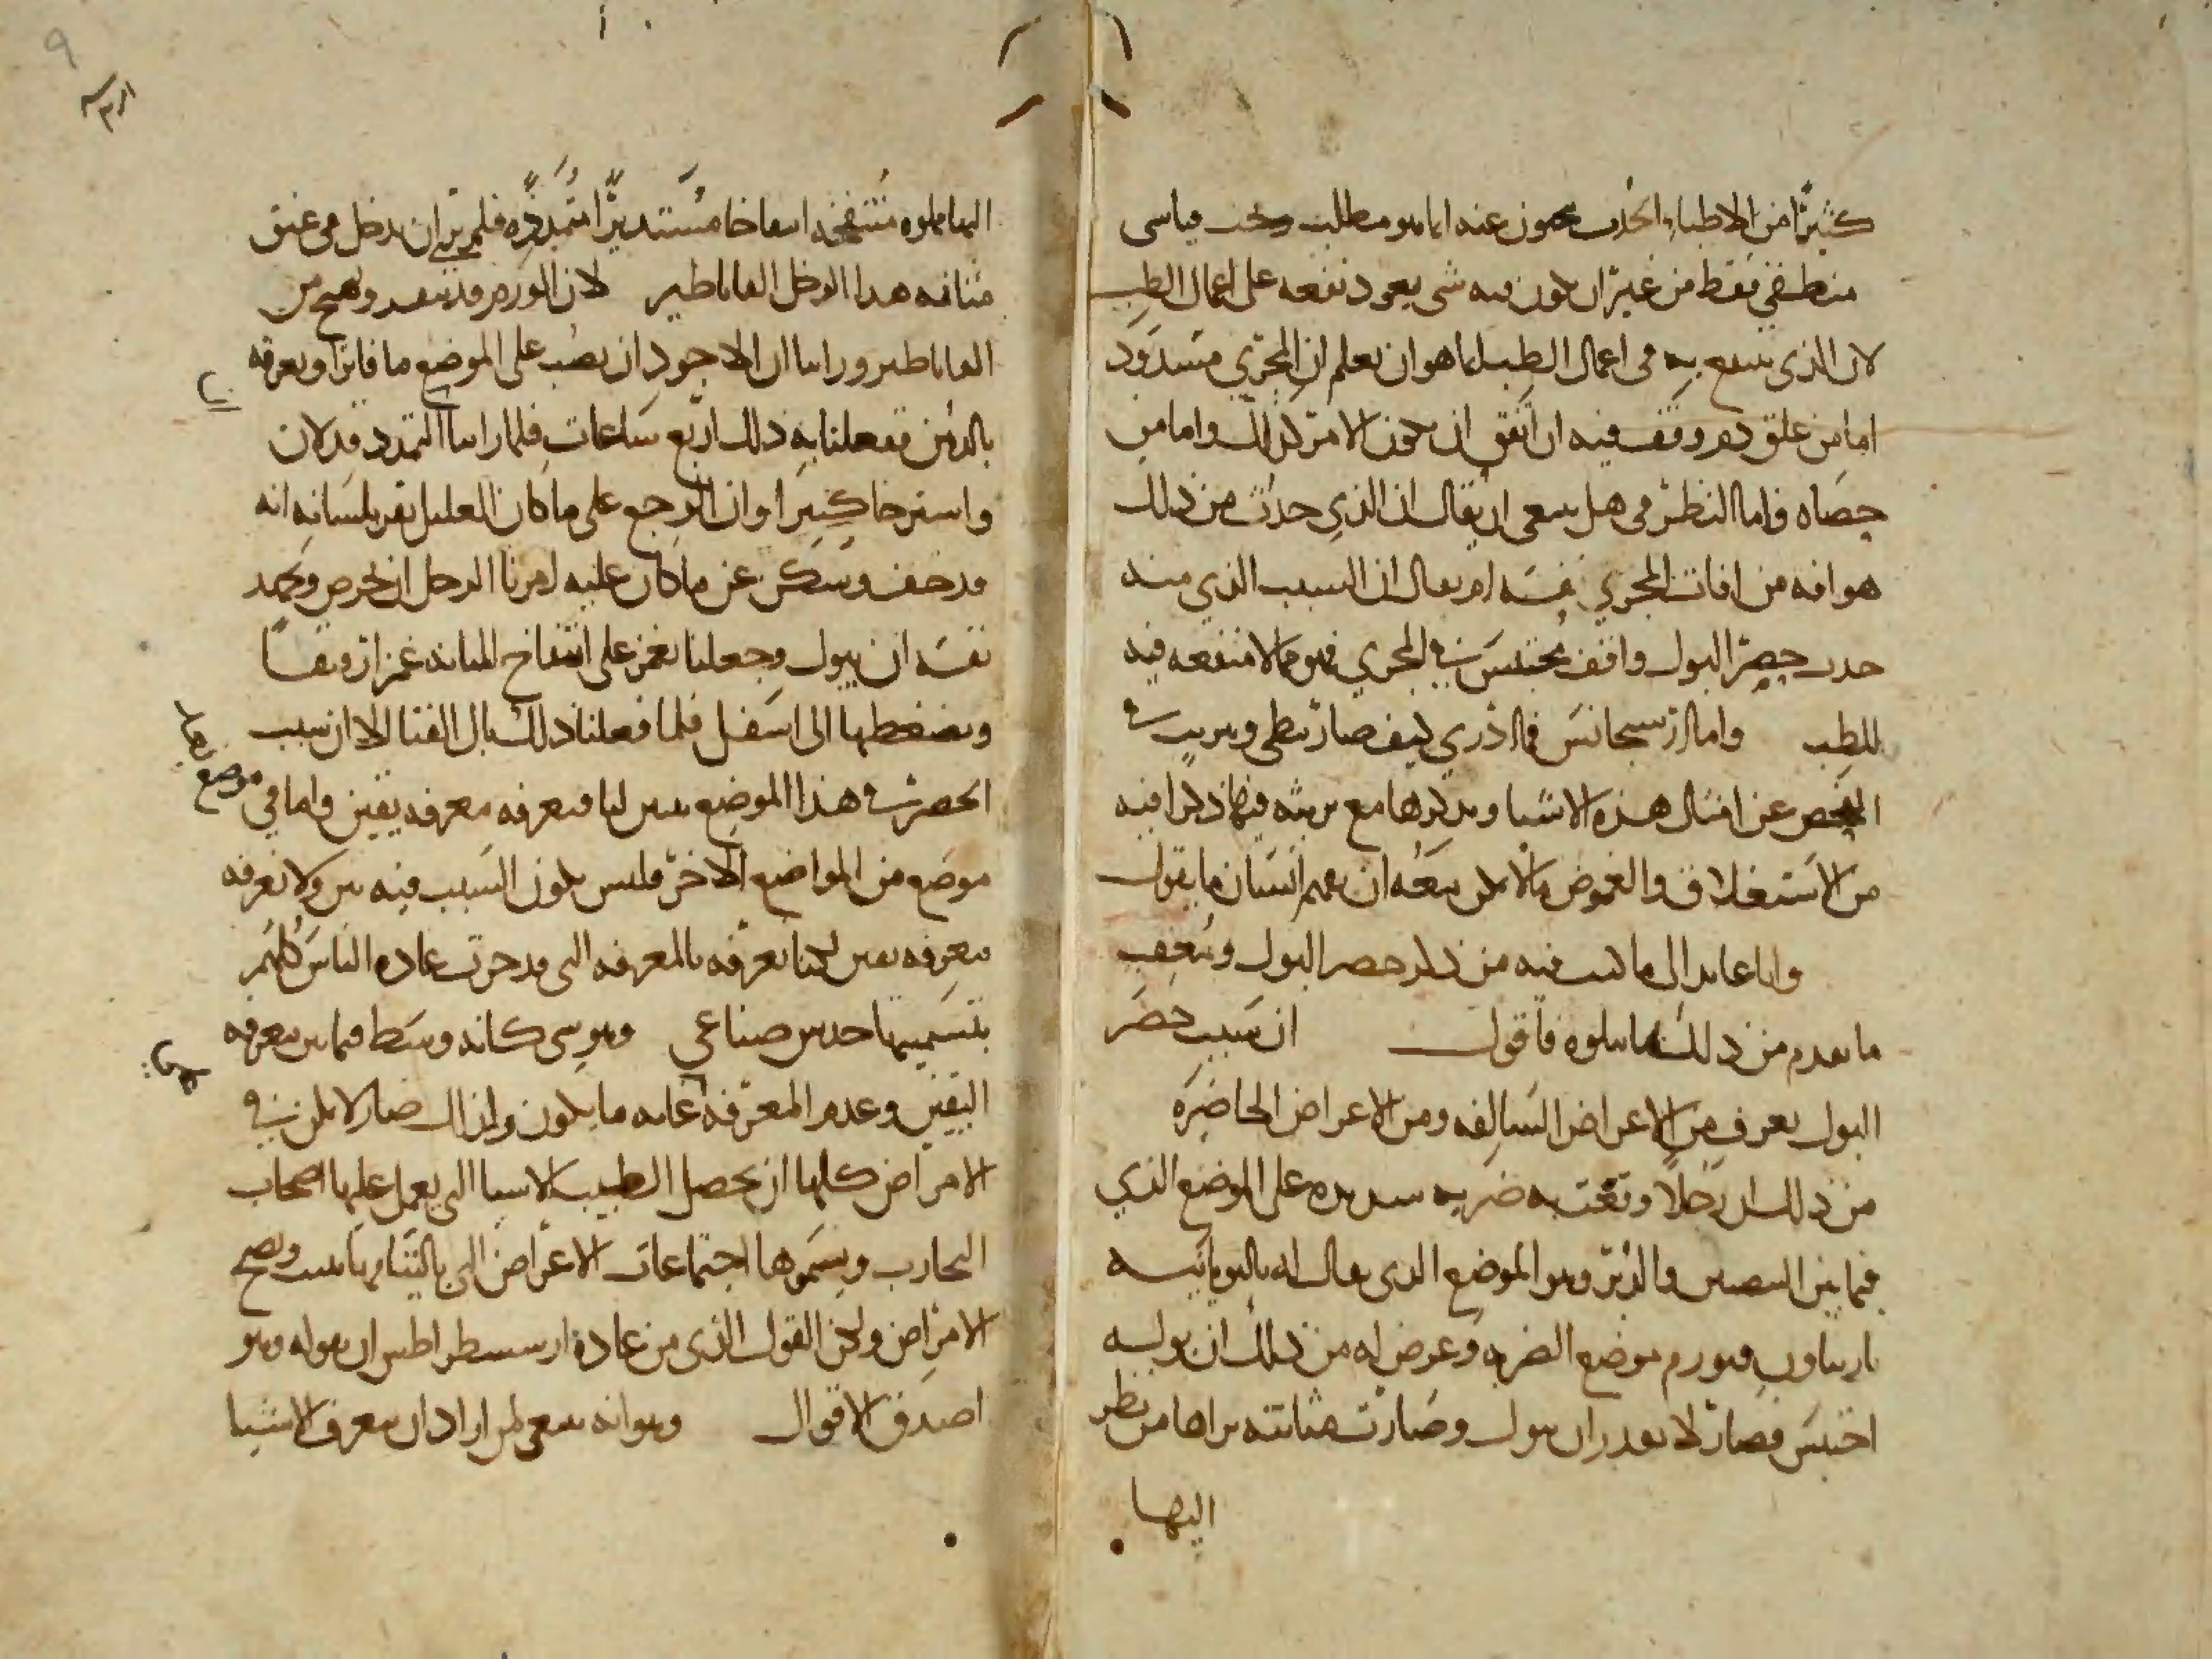 كثيرا من الاطباء الحدث عنه انما هو مطلب وبحث قياسى
منطقي فقط من غير ان يكون فيه شى يعود نفعه على اعمال الطب
لان الذى ينتفع به فى اعمال الطب انما هو ان يعلم ان المجري مسدود
اما من علق دم وقف فيه ان اتفق ان يكون الامر كذلك واما من
حصاه واما النظر فى هل ينبغى ان يقال ان الذي حدث من ذلك
هو افه من افات المجري نفسه ام يقال ان السبب الذي منه
حدث حصر البول واقف محتبس في المجري فهو مما لا منفعه فيه
للطب واما ارسيجانس فما ادري كيف صار يبطى ويريث فى
الفحص عن امثال هذه الاشيا ويذكرها مع ريثه فيما ذكرا فيه
من الاستغلاق والغموض ما لا يمكن معه ان يفهم انسان ما يقول
وانا عايد الى ما كنت فيه من ذكر حصر البول ومتعقب
ما تقدم من ذلك بما يتلوه فاقول ان سبب حصر
البول يعرف من الاعراض السالفه ومن الاعراض الحاضره
من ذلك ان رجلا وقعت به ضربه شديده على الموضع الذي
فيما بين البيضتين والدبر وهو الموضع الذى يقال له باليونانيه
باريناون فتورم موضع الضربه وعرض له من ذلك ان بوله
احتبس فصار لا يقدر ان يبول وصارت مثانته يراها من نظر
اليها
اليها مملوه منتفخه انتفاخا مستديرا متمددة فلم نر ان ندخل فى عنق
مثانته هذا الوجل القاثاطير لان الورم قد ينعقد ويهيج من
القاثاطير وراينا ان الاجود ان نصب على الموضع ما فاترا ونعرقه
بالدهن ففعلنا به ذلك اربع ساعات فلما راينا التمدد قد لان
واسترخا كثيرا وان الوجع على ما كان العليل يقر بلسانه انه
قد خف وسكن عن ما كان عليه امرنا الرجل ان يحرص ويجهد
نفسه ان يبول وجعلنا نغمز على انتفاخ المثانه غمزا رفيقا
ونضغطها الى اسفل فلما فعلنا ذلك بال الفتا الا ان سبب
الحصر فى هذا الموضع بين لنا فنعرفه معرفه يقين واما في موضع
موضع من المواضع الاخر فليس يكون السبب فيه بين ولا نعرفه
معرفه يقين لكنا نعرفه بالمعرفه التى قد جرت عادة الناس كلهم
بتسميتها حدس صناعي وهو شى كانه وسط فيما بين معرفه
اليقين وعدم المعرفه عامه ما يكون ولذلك صار لا يمكن في
الامراض كلها ان يحصل الطبيب الاشيا التى يعمل عليها اصحاب
التجارب ويسموها اجتماعات الاعراض التى بالتيامها يثبت ويصح
الامراض ولكن القول الذى من عادة ارسسطراطس ان يقوله وهو
اصدق الاقوال وهو انه ينبغى لمن اراد ان يعرف الاشيا